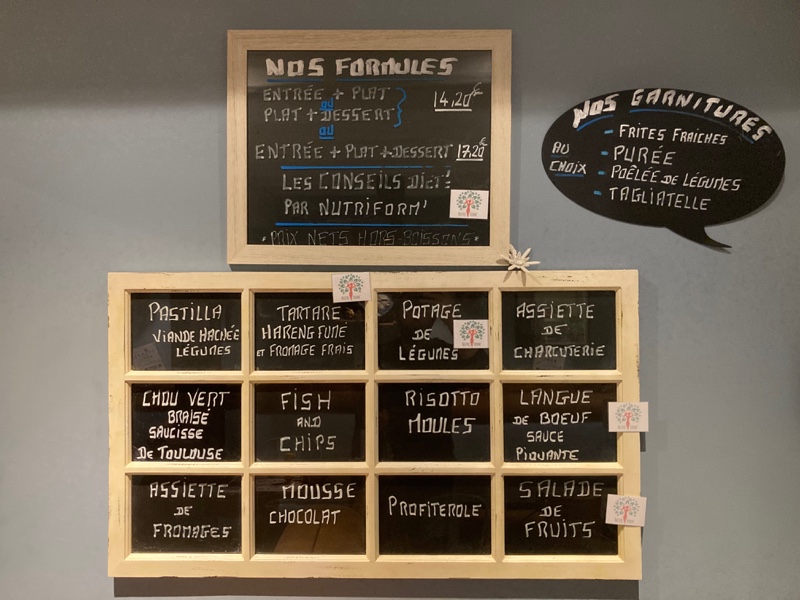 NOS FORMULES
ENTRÉE + PLAT
ou
PLAT + DESSERT
14,20€
ou
ENTRÉE + PLAT + DESSERT 17,20€
LES CONSEILS DIET'
PAR NUTRIFORM'
PRIX NETS HORS-BOISSONS
NOS GARNITURES
AU CHOIX
- FRITES FRAÎCHES
- PURÉE
- POÊLÉE DE LÉGUMES
- TAGLIATELLE
PASTILLA
VIANDE HACHÉE
LÉGUMES
TARTARE
HARENG FUMÉ
ET FROMAGE FRAIS
POTAGE
DE
LÉGUMES
ASSIETTE
DE
CHARCUTERIE
CHOU VERT
BRAISÉ
SAUCISSE
DE TOULOUSE
FISH
AND
CHIPS
RISOTTO
MOULES
LANGUE
DE BOEUF
SAUCE
PIQUANTE
ASSIETTE
DE
FROMAGES
MOUSSE
CHOCOLAT
PROFITEROLE
SALADE
DE
FRUITS